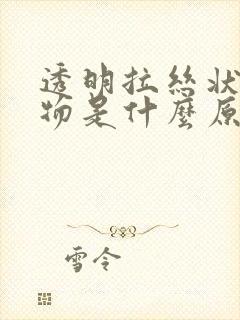 透明拉絲狀
物是什麼原
雪令